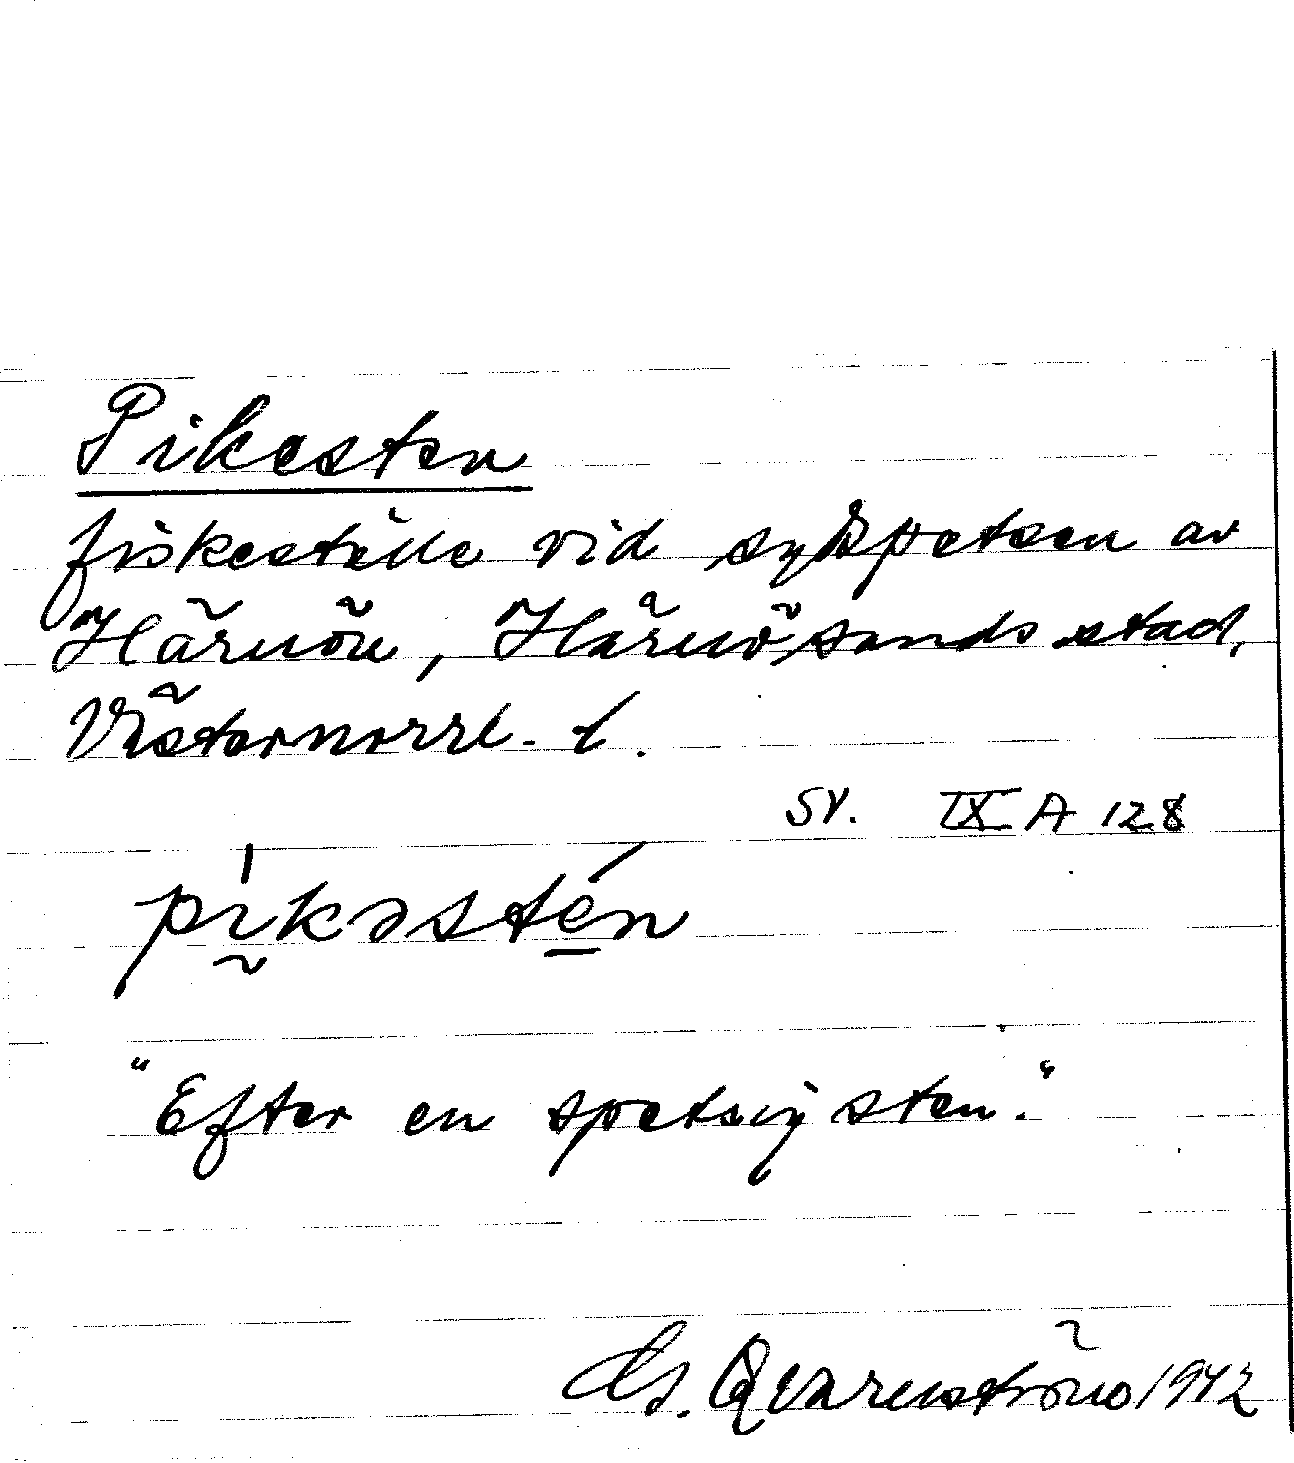 Pikesten
fiskeställe vid sydspetsen av
Härnön, Härnösands stad,
Västernorrl. l.
SV. IX A 128
pìkəstén
"Efter en spetsig sten."
Qvarnström 1942